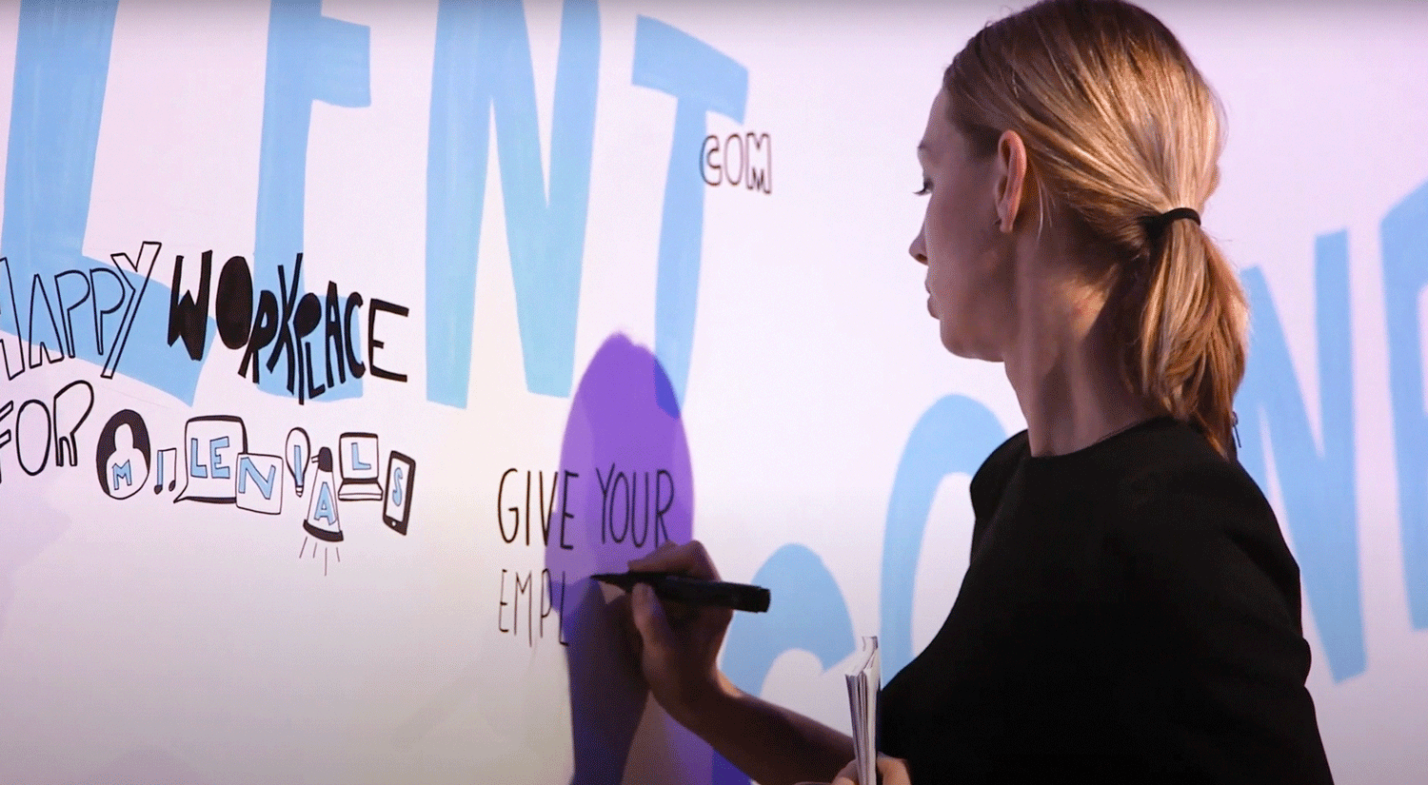 LENT
COM
CON
HAPPY WORKPLACE
FOR MILENIALS
GIVE YOUR
EMPL